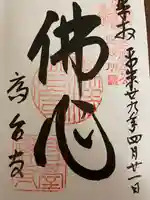 奉拝 平成廿九年四月廿一日
佛心
高台寺